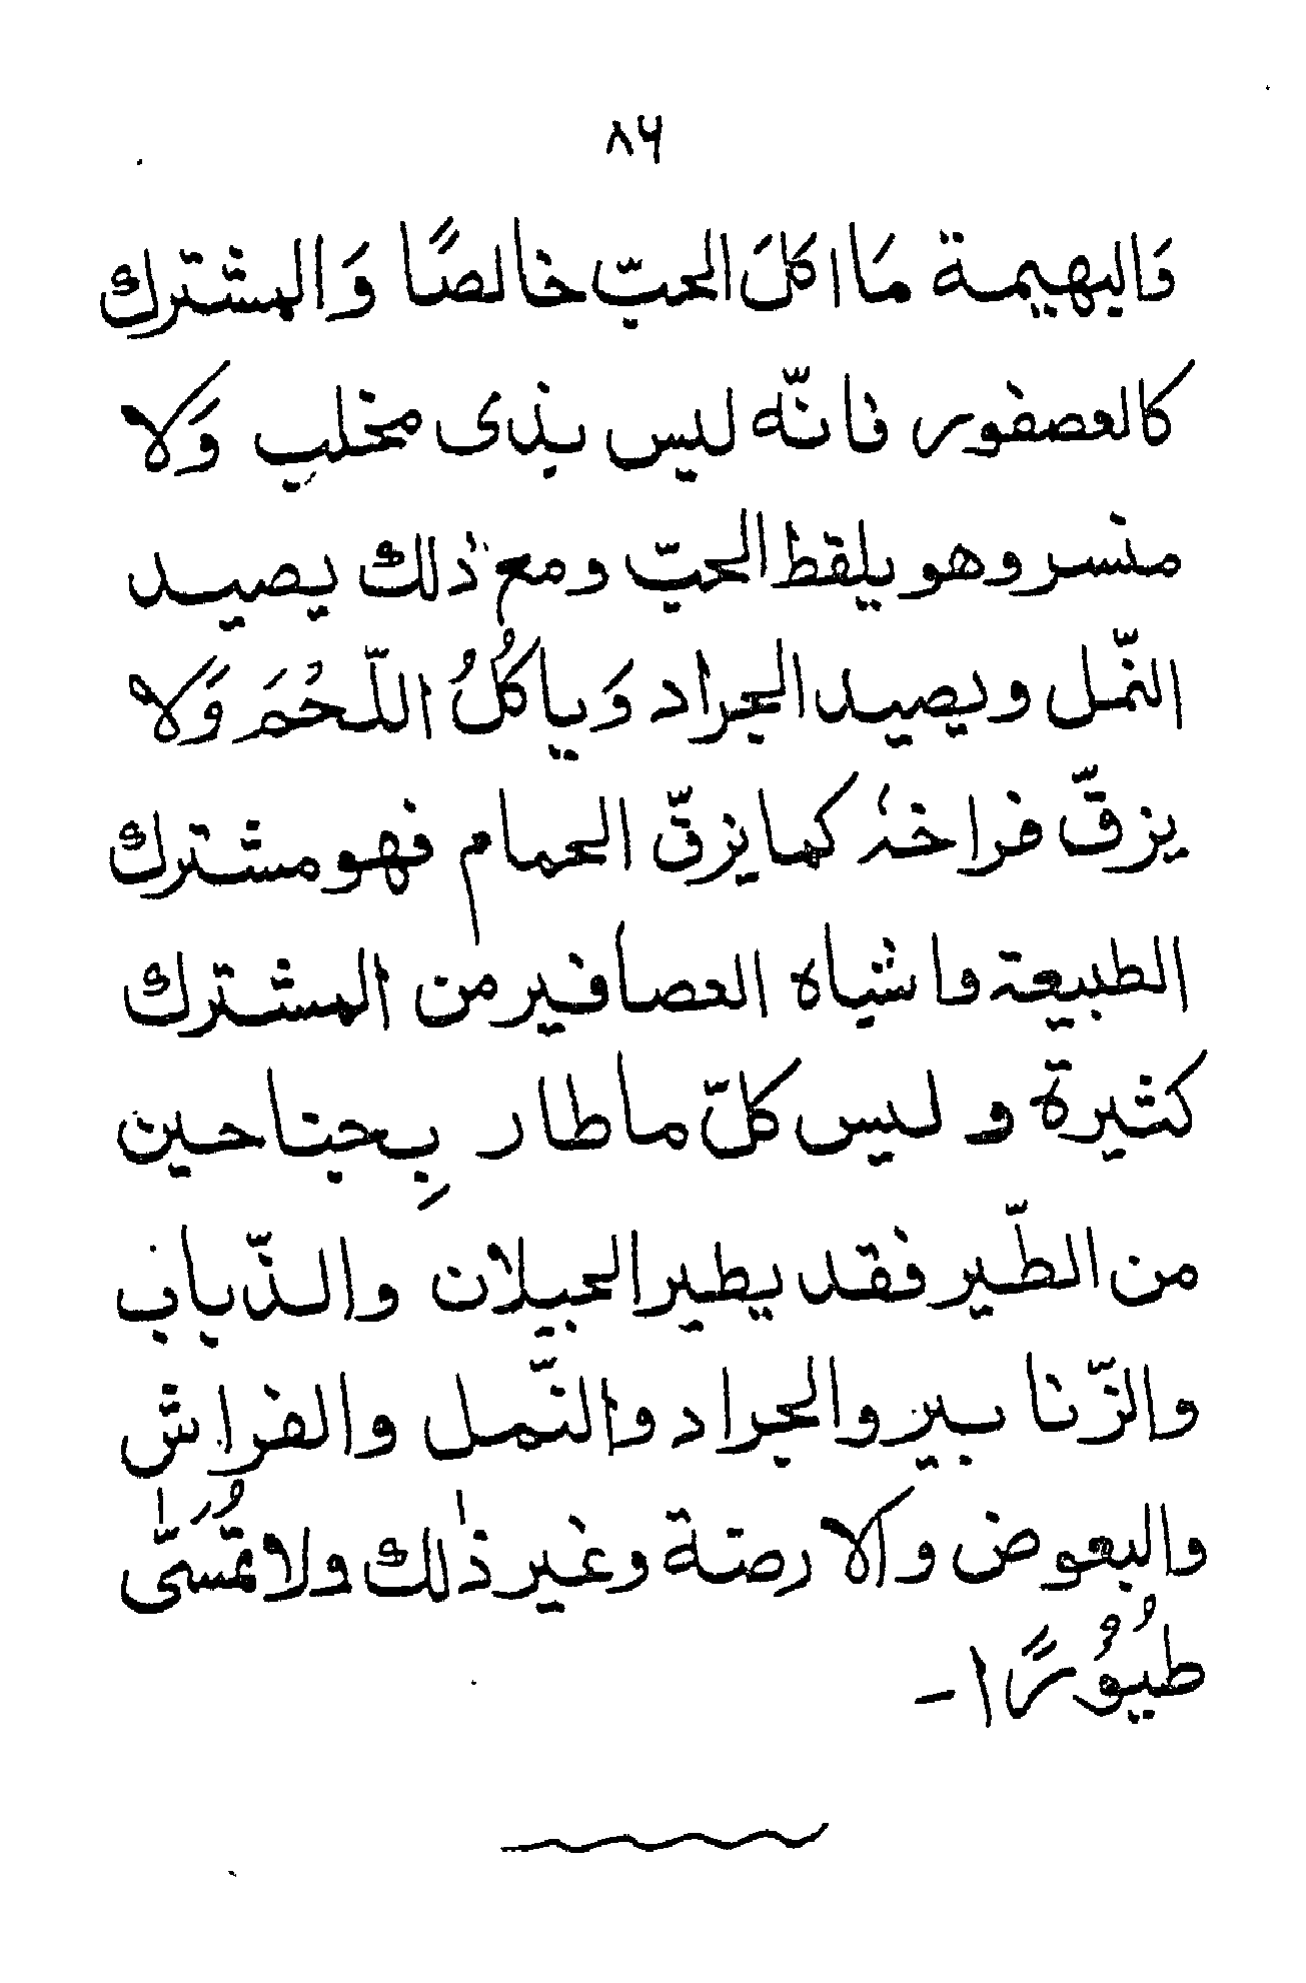 ۸۶
وَالبهيمة مَا اكلَ الحبّ خالصًا وَالمشترك
كالعصفور فانّه ليس بذى مخلب وَلا
منسر وهو يلقط الحبّ ومع ذلك يصيد
النّمل ويصيد الجراد وَياكُلُ اللّحُمَ وَلا
يزقّ فراخهٗ كما يزقّ الحمام فهو مشترك
الطبيعة واشباه العصافير من المشترك
كثيرة و ليس كلّ ما طار بِجناحين
من الطّير فقد يطير الجيلان والذّباب
والزّنابير والجراد والنّمل والفراش
والبعوض والارضة وغير ذٰلك ولا تُسَمّٰى
طُيُوُرًا-